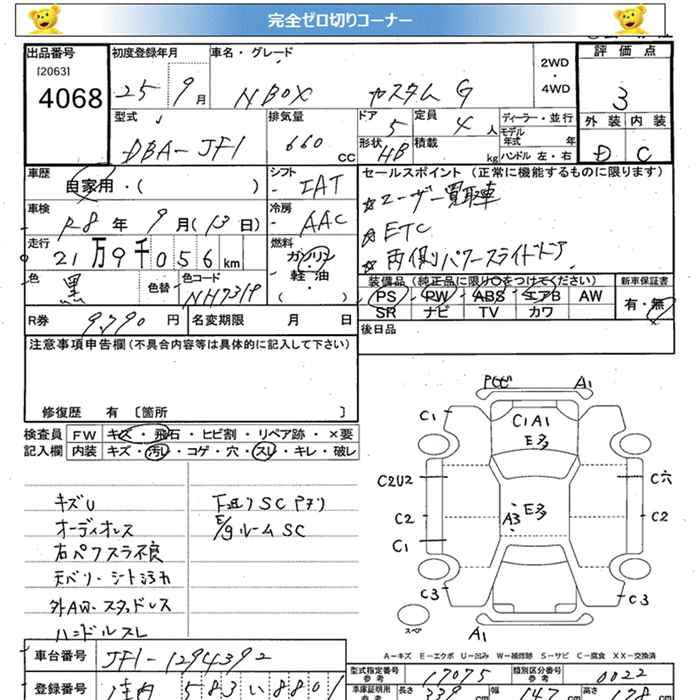 完全ゼロ切りコーナー
出品番号 初度登録年月 車名・グレード 評価点
[2063]
4068 25 9月 NBOX カスタム G 2WD・4WD 3
型式 排気量 ドア 定員 ディーラー・並行 外装 内装
DBA-JF1 660 CC 5 4人 モデル年式 年 D C
形状 HB 積載 kg ハンドル 左・右
車歴 自家用・( ) シフト IAT セールスポイント (正常に機能するものに限ります)
☆ユーザー買取車
車検 R8年 9月(13日) 冷房 AAC ☆ETC
走行 21万9千056km 燃料 ガソリン・軽油・( ) ☆両側パワースライドドア
色 黒 色替 色コード NH731P 装備品 (純正品に限り○をつけてください) 新車保証書
PS・PW・ABS・エアB AW 有・無
SR ナビ TV カワ
R券 9,790円 名変期限 月 日 後日品
注意事項申告欄(不具合内容等は具体的に記入して下さい)
修復歴 有 〔箇所 〕
検査員 FW キズ・飛石・ヒビ割・リペア跡・×要
記入欄 内装 キズ・汚レ・コゲ・穴・スレ・キレ・破レ
キズU
オーディオレス
右パワスラ不良
天ベリ・シート汚れ
外AW・スタッドレス
ハンドルスレ
下廻りSC Pアリ
E/gルームSC
A1
C1 C1A1
E多
C2U2 C穴
E多
C2 A3 C2
C1
C3 C3
スペア A1
A-キズ E-エクボ U-凹み W-補修跡 S-サビ C-腐食 XX-交換済
車台番号 JF1-1294392 型式指定番号 参考 17075 類別区分番号 参考 0022
登録番号 583 い 8801 車庫証明用 参考 長さ 339 cm 幅 147 cm 高さ 178 cm